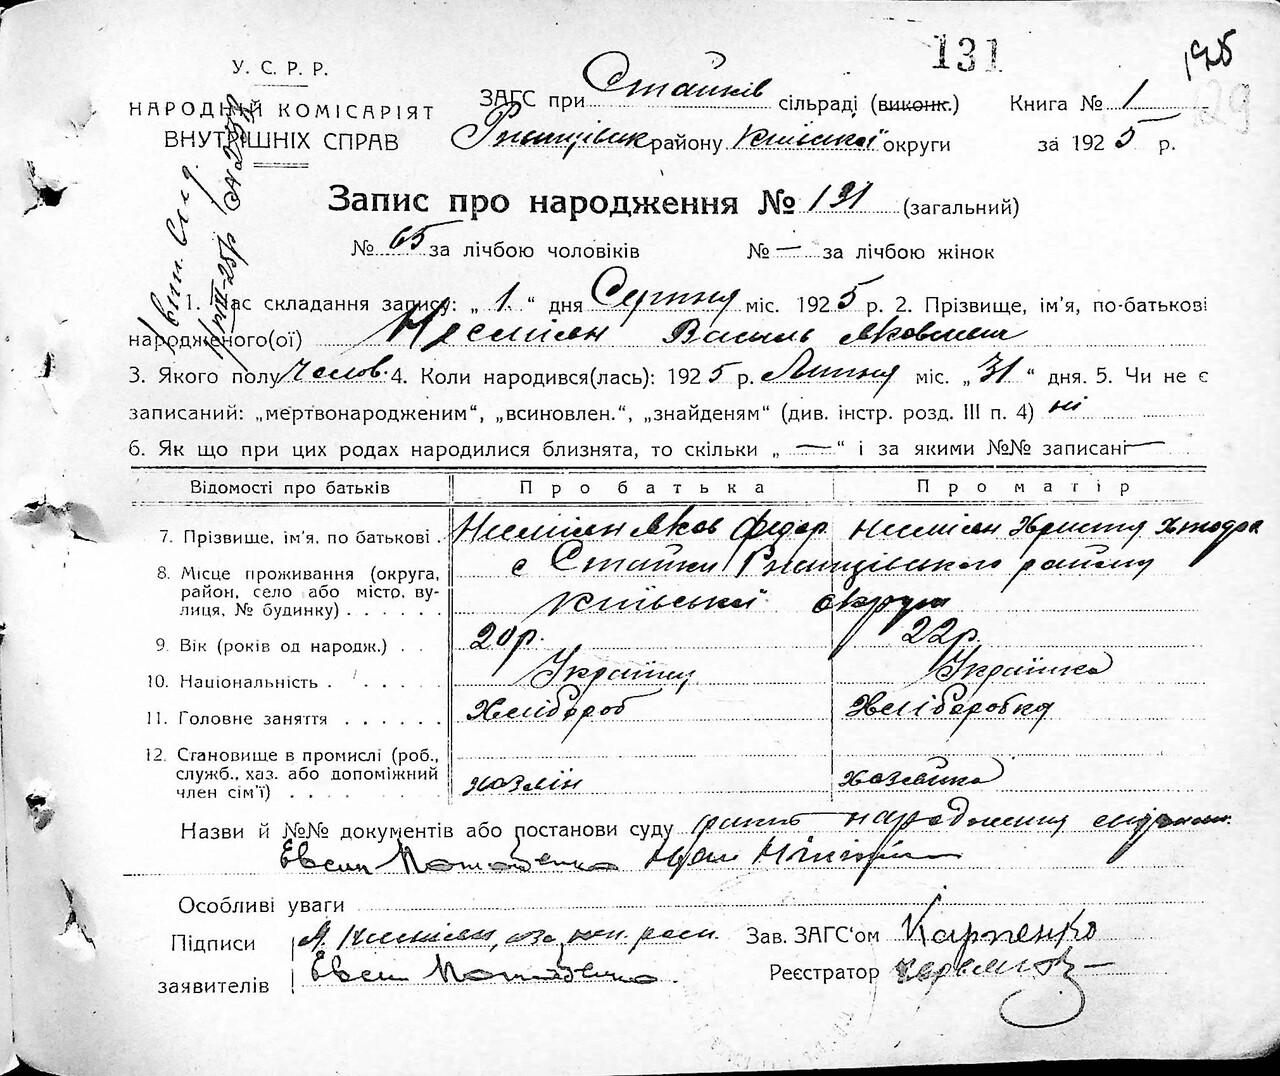 131
1925
129
У. С. Р. Р.
НАРОДНІЙ КОМІСАРІЯТ
ВНУТРІШНІХ СПРАВ
ЗАГС при Стайків сільраді (виконк.) Книга № 1
Ржищівськ району Київської округи за 1925 р.
Запис про народження № 131 (загальний)
№ 65 за лічбою чоловіків № — за лічбою жінок
1. Час складання запису: „1.“ дня Серпня міс. 1925 р. 2. Прізвище, ім’я, по-батькові
народженого(ої) Несміян Василь Яковлевич
3. Якого полу Челов. 4. Коли народився(лась): 1925 р. Липня міс. „31“ дня. 5. Чи не є
записаний: „мертвонародженим“, „всиновлен.“, „знайденям“ (див. інстр. розд. III п. 4) ні
6. Як що при цих родах народилися близнята, то скільки „—“ і за якими №№ записані —
Відомості про батьків Про батька Про матір
7. Прізвище, ім’я, по батькові . Несміян Яков Федор Несміян Христя
8. Місце проживання (округа,
район, село або місто, вулиця, № будинку) . . . . . .
с Стайки Ржищівського району
Київської округи
9. Вік (років од народж.) . . 20 р. 22 р.
10. Національність . . . . . . Українц Українка
11. Головне заняття . . . . . . Хлібороб Хліборобка
12. Становище в промислі (роб.,
служб., хаз. або допоміжний
член сім’ї) . . . . . . . хазяїн хазяйка
Назви й №№ документів або постанови суду факт народження
Евсей
Особливі уваги
Підписи
заявителів
Я. Несміян,
Евсей
Зав. ЗАГС‘ом Карпенко
Реєстратор